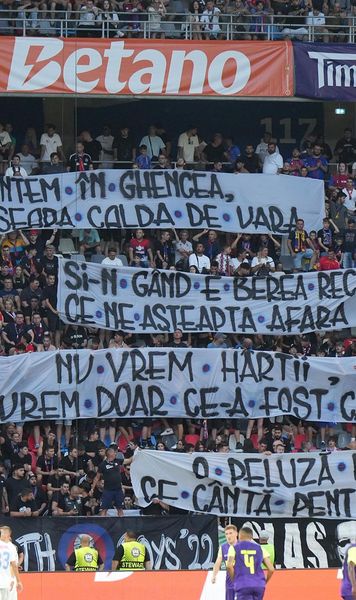 Betano Tim
117
NTEM ÎN GHENCEA,
SEARA CALDA DE VARA
SI-N GÂND E BEREA REC
CE NE AȘTEAPTA AFARA
NU VREM HÂRTII,
VREM DOAR CE-A FOST C
O PELUZĂ
CE CÂNTĂ PENT
TH BOYS'22 HAS
STEWARD STEWARD
4